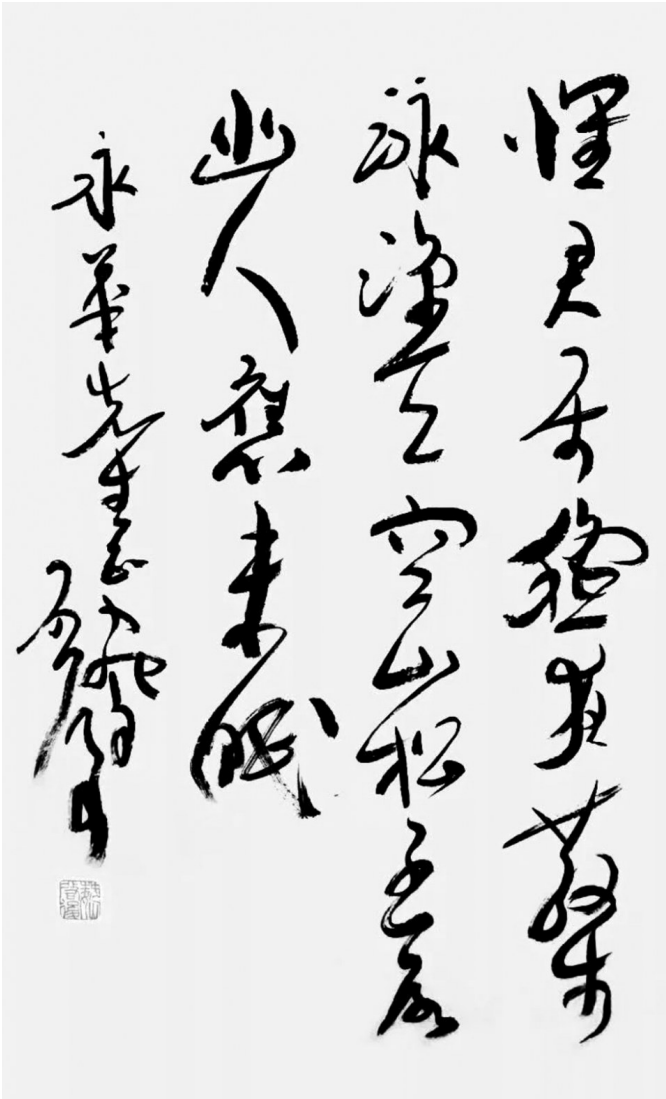 懷君屬秋夜散步
詠涼天空山松子落
幽人應未眠
永華先生正